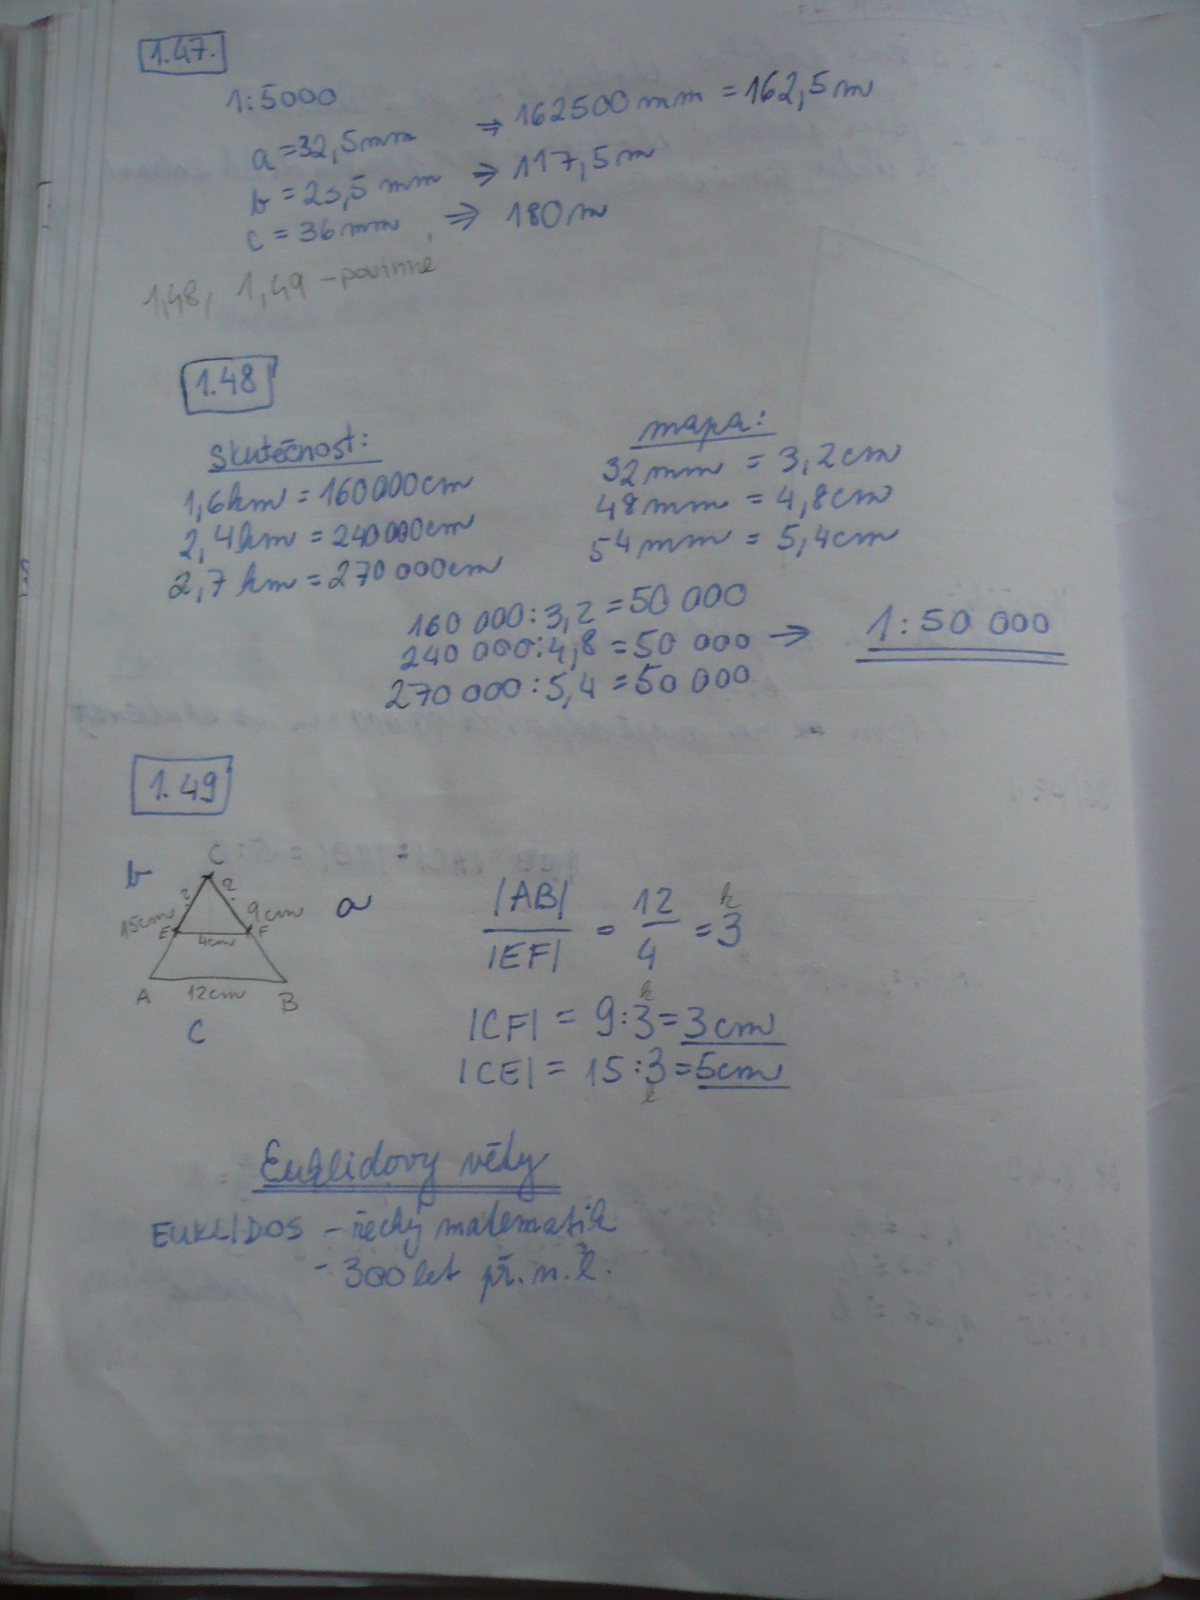 1.47.
1:5000
a = 32,5mm ⇒ 162500mm = 162,5m
b = 23,5 mm ⇒ 117,5m
c = 36mm ⇒ 180m
1,48, 1,49 - povinné
1.48
Skutečnost:
1,6km = 160000cm
2,4km = 240000cm
2,7 km = 270 000cm
mapa:
32mm = 3,2cm
48mm = 4,8cm
54mm = 5,4cm
160 000:3,2 = 50 000
240 000:4,8 = 50 000 → 1:50 000
270 000:5,4 = 50 000
1.49
b C
? ?
15cm 9cm a
E 4cm F
A 12cm B
C
|AB| / |EF| = 12 / 4 = 3 k
|CF| = 9:3 = 3cm k
|CE| = 15:3 = 5cm k
Euklidovy věty
EUKLIDOS - řecký matematik
- 300 let př. n. l.